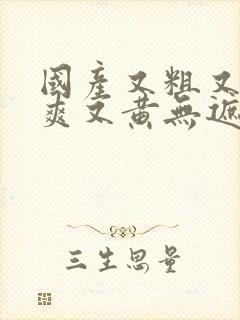 國產又粗又
爽又黃無遮
三生思量